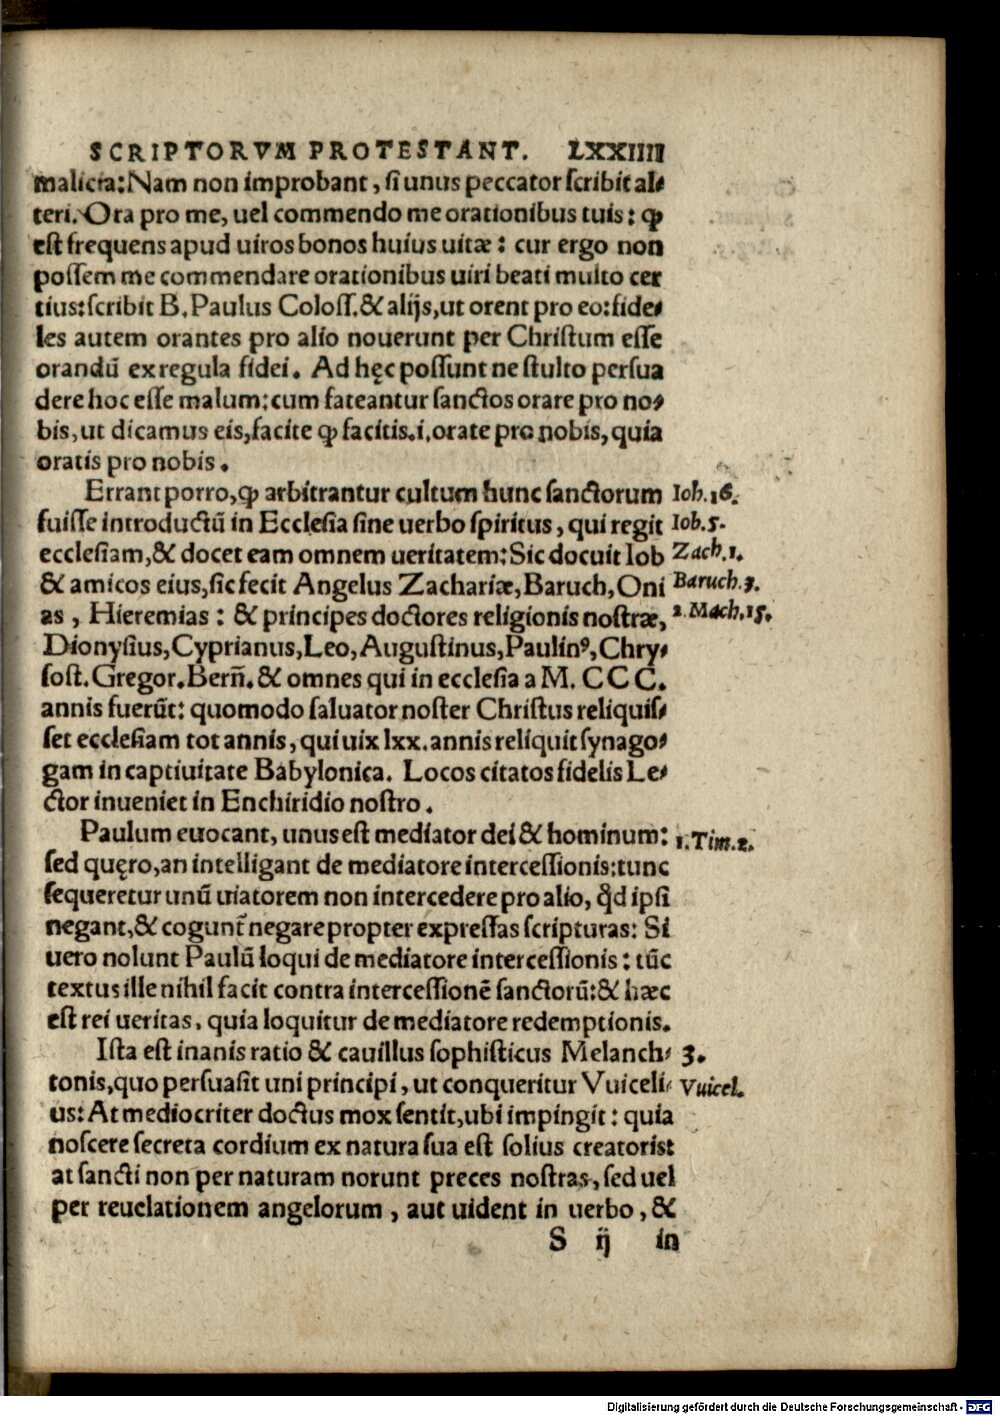 SCRIPTORVM PROTESTANT. LXXIIII
malicia: Nam non improbant, si unus peccator scribit al⸗
teri. Ora pro me, uel commendo me orationibus tuis: ꝙ
est frequens apud uiros bonos huius uitæ: cur ergo non
possem me commendare orationibus uiri beati multo cer
tius: scribit B. Paulus Coloss. & alijs, ut orent pro eo: fide⸗
les autem orantes pro alio nouerunt per Christum esse
orandū ex regula fidei. Ad hęc possunt ne stulto persua
dere hoc esse malum: cum fateantur sanctos orare pro no⸗
bis, ut dicamus eis, facite ꝙ facitis. i. orate pro nobis, quia
oratis pro nobis.
Errant porro, ꝙ arbitrantur cultum hunc sanctorum Ioh.16.
fuisse introductū in Ecclesia sine uerbo spiritus, qui regit Iob.5.
ecclesiam, & docet eam omnem ueritatem: Sic docuit Iob Zach.1.
& amicos eius, sic fecit Angelus Zachariæ, Baruch, Oni Baruch.3.
as, Hieremias: & principes doctores religionis nostræ, 2.Mach.15.
Dionysius, Cyprianus, Leo, Augustinus, Paulinꝰ, Chry⸗
sost. Gregor. Berñ. & omnes qui in ecclesia a M. CCC.
annis fuerūt: quomodo saluator noster Christus reliquis⸗
set ecclesiam tot annis, qui uix lxx. annis reliquit synago⸗
gam in captiuitate Babylonica. Locos citatos fidelis Le⸗
ctor inueniet in Enchiridio nostro.
Paulum euocant, unus est mediator dei & hominum: 1.Tim.2.
sed quęro, an intelligant de mediatore intercessionis: tunc
sequeretur unū uiatorem non intercedere pro alio, ꝗd ipsi
negant, & cogunt̃ negare propter expressas scripturas: Si
uero nolunt Paulū loqui de mediatore intercessionis: tūc
textus ille nihil facit contra intercessionē sanctorū: & hæc
est rei ueritas, quia loquitur de mediatore redemptionis.
Ista est inanis ratio & cauillus sophisticus Melanch⸗ 3.
tonis, quo persuasit uni principi, ut conqueritur Vuiceli⸗ Vuicel.
us: At mediocriter doctus mox sentit, ubi impingit: quia
noscere secreta cordium ex natura sua est solius creatoris:
at sancti non per naturam norunt preces nostras, sed uel
per reuelationem angelorum, aut uident in uerbo, &
S ij in
Digitalisierung gefördert durch die Deutsche Forschungsgemeinschaft - DFG